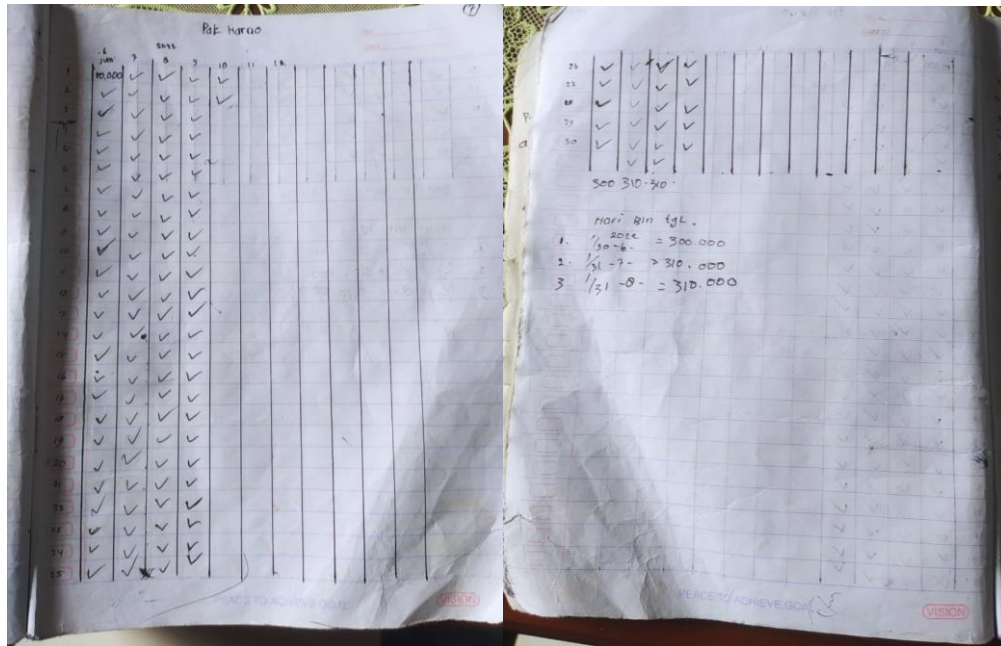 (2)
Pak Harno
2022
6 7 8 9 10 11 12
Juni
1 10,000 ✓ ✓ ✓ ✓
2 ✓ ✓ ✓ ✓ ✓
3 ✓ ✓ ✓ ✓
✓ ✓ ✓ ✓
✓ ✓ ✓ ✓
✓ ✓ ✓ ✓
✓ ✓ ✓ ✓
8 ✓ ✓ ✓ ✓
9 ✓ ✓ ✓ ✓
10 ✓ ✓ ✓ ✓
11 ✓ ✓ ✓ ✓
12 ✓ ✓ ✓ ✓
13 ✓ ✓ ✓ ✓
14 ✓ ✓ ✓ ✓
15 ✓ ✓ ✓ ✓
16 ✓ ✓ ✓ ✓
17 ✓ ✓ ✓ ✓
18 ✓ ✓ ✓ ✓
19 ✓ ✓ ✓ ✓
20 ✓ ✓ ✓ ✓
21 ✓ ✓ ✓ ✓
22 ✓ ✓ ✓ ✓
23 ✓ ✓ ✓ ✓
24 ✓ ✓ ✓ ✓
25 ✓ ✓ ✓ ✓
PEACE TO ACHIEVE GOAL
VISION
26 ✓ ✓ ✓ ✓
✓ ✓ ✓ ✓
✓ ✓ ✓ ✓
29 ✓ ✓ ✓ ✓
30 ✓ ✓ ✓ ✓
✓ ✓
300 310 310
Hari Bln tgl.
2022
1. 1/30 -6- = 300.000
2. 1/31 -7- = 310.000
3 1/31 -8- = 310.000
PEACE TO ACHIEVE GOAL
VISION